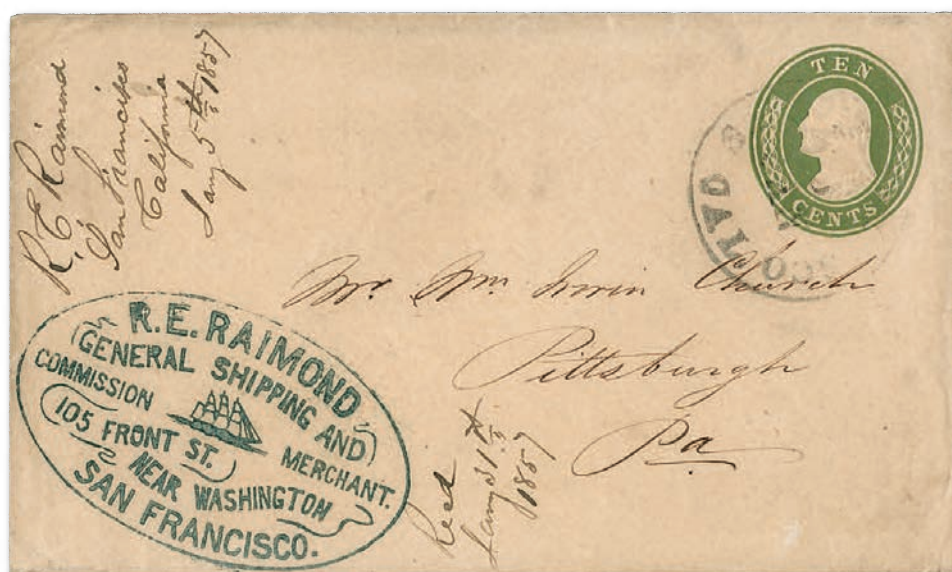 R. E. Raimond
San Francisco
California
Jany 5th 1857
TEN
CENTS
Mr. Wm. Irwin Church
Pittsburgh
Pa
R.E. RAIMOND
GENERAL SHIPPING AND
COMMISSION MERCHANT.
105 FRONT ST.
NEAR WASHINGTON
SAN FRANCISCO.
Recd
Jany 31st
1857